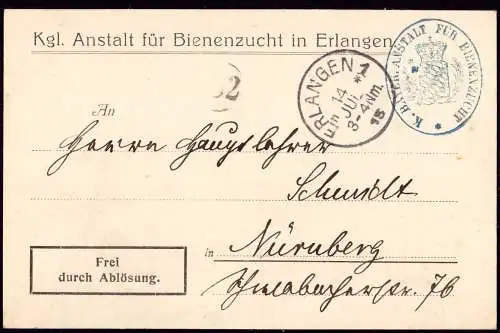 Kgl. Anstalt für Bienenzucht in Erlangen
K. BAYER. ANSTALT FÜR BIENENZUCHT
ERLANGEN 1
14
JUL
3-4 Nm.
15
An
Herrn Hauptlehrer
Schmidt
in Nürnberg
Schwabacherstr. 76
Frei
durch Ablösung.